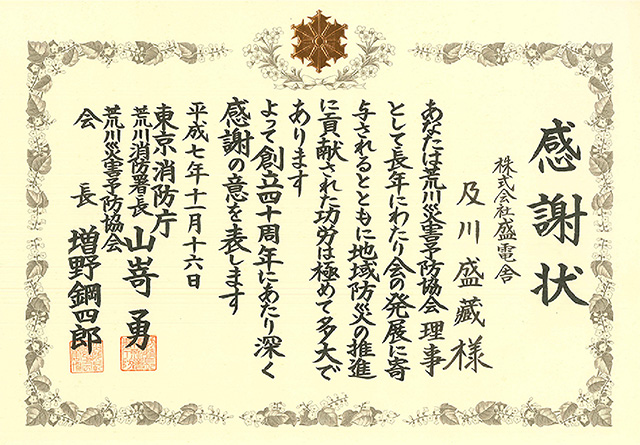 感謝状
株式会社盛電舎
及川盛蔵様
あなたは荒川災害予防協会理事
として長年にわたり会の発展に寄
与されるとともに地域防災の推進
に貢献された功労は極めて多大で
あります
よって創立四十周年にあたり深く
感謝の意を表します
平成七年十一月十六日
東京消防庁
荒川消防署長 山嵜勇
荒川災害予防協会
会長 増野鋼四郎